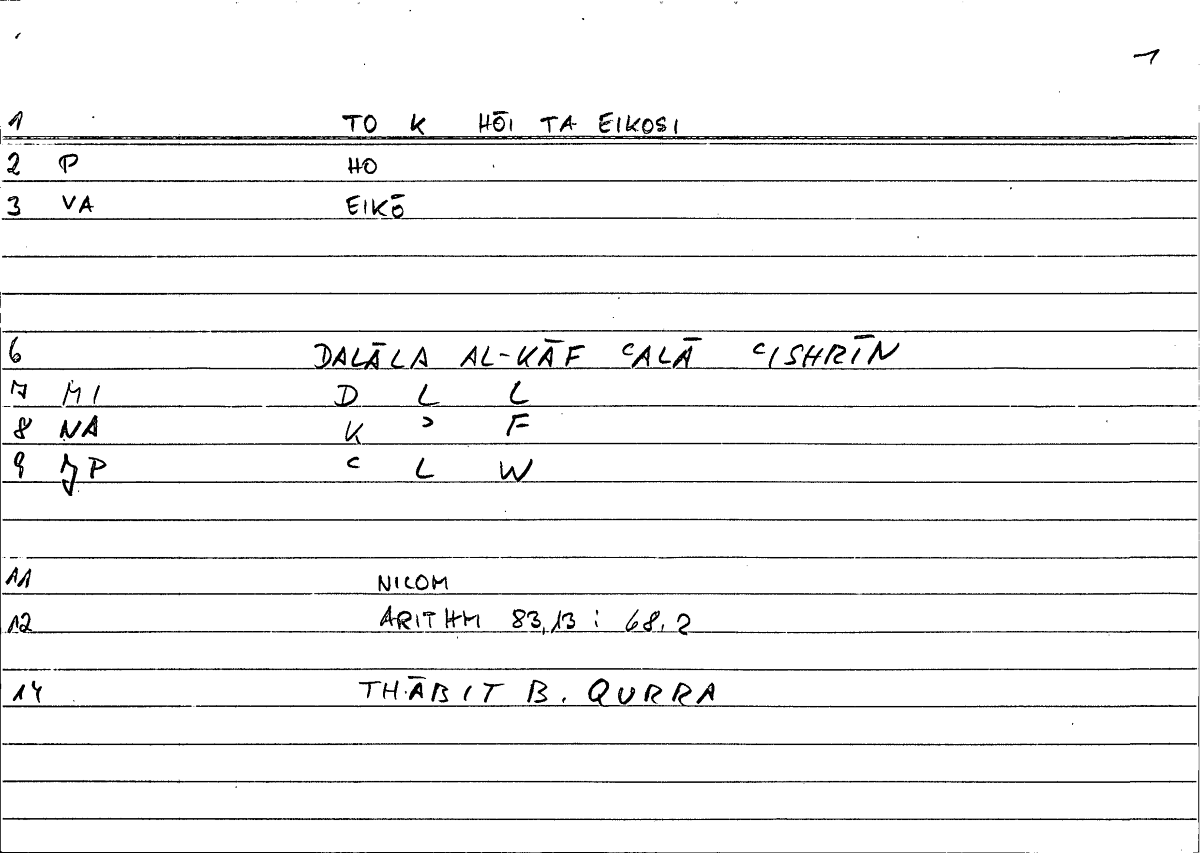 1
1 TO K HŌI TA EIKOSI
2 P HO
3 VA EIKŌ
6 DALĀLA AL-KĀF ʿALĀ ʿISHRĪN
7 MI D L L
8 NA K ʾ F
9 JP ʿ L W
11 NICOM
12 ARITHM 83,13 : 68,2
14 THĀBIT B. QURRA